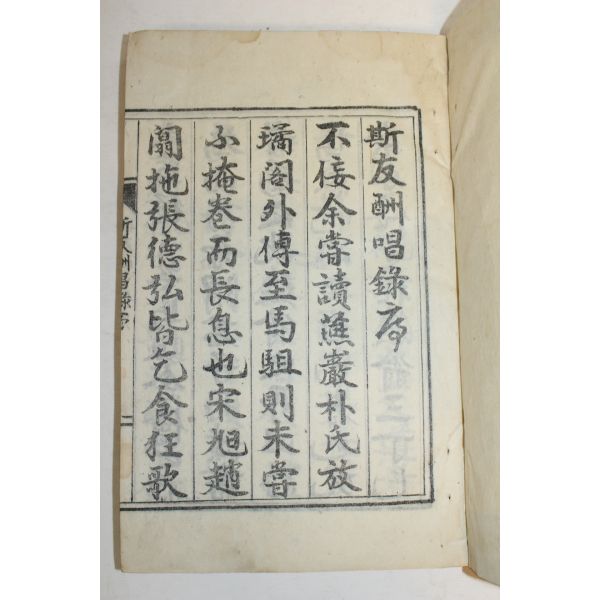 斯友酬唱錄序
不佞余嘗讀燕巖朴氏放
璚閣外傳至馬駔則未嘗
不掩卷而長息也宋旭趙
闒拖張德弘皆乞食狂歌
斯友酬唱錄序
一